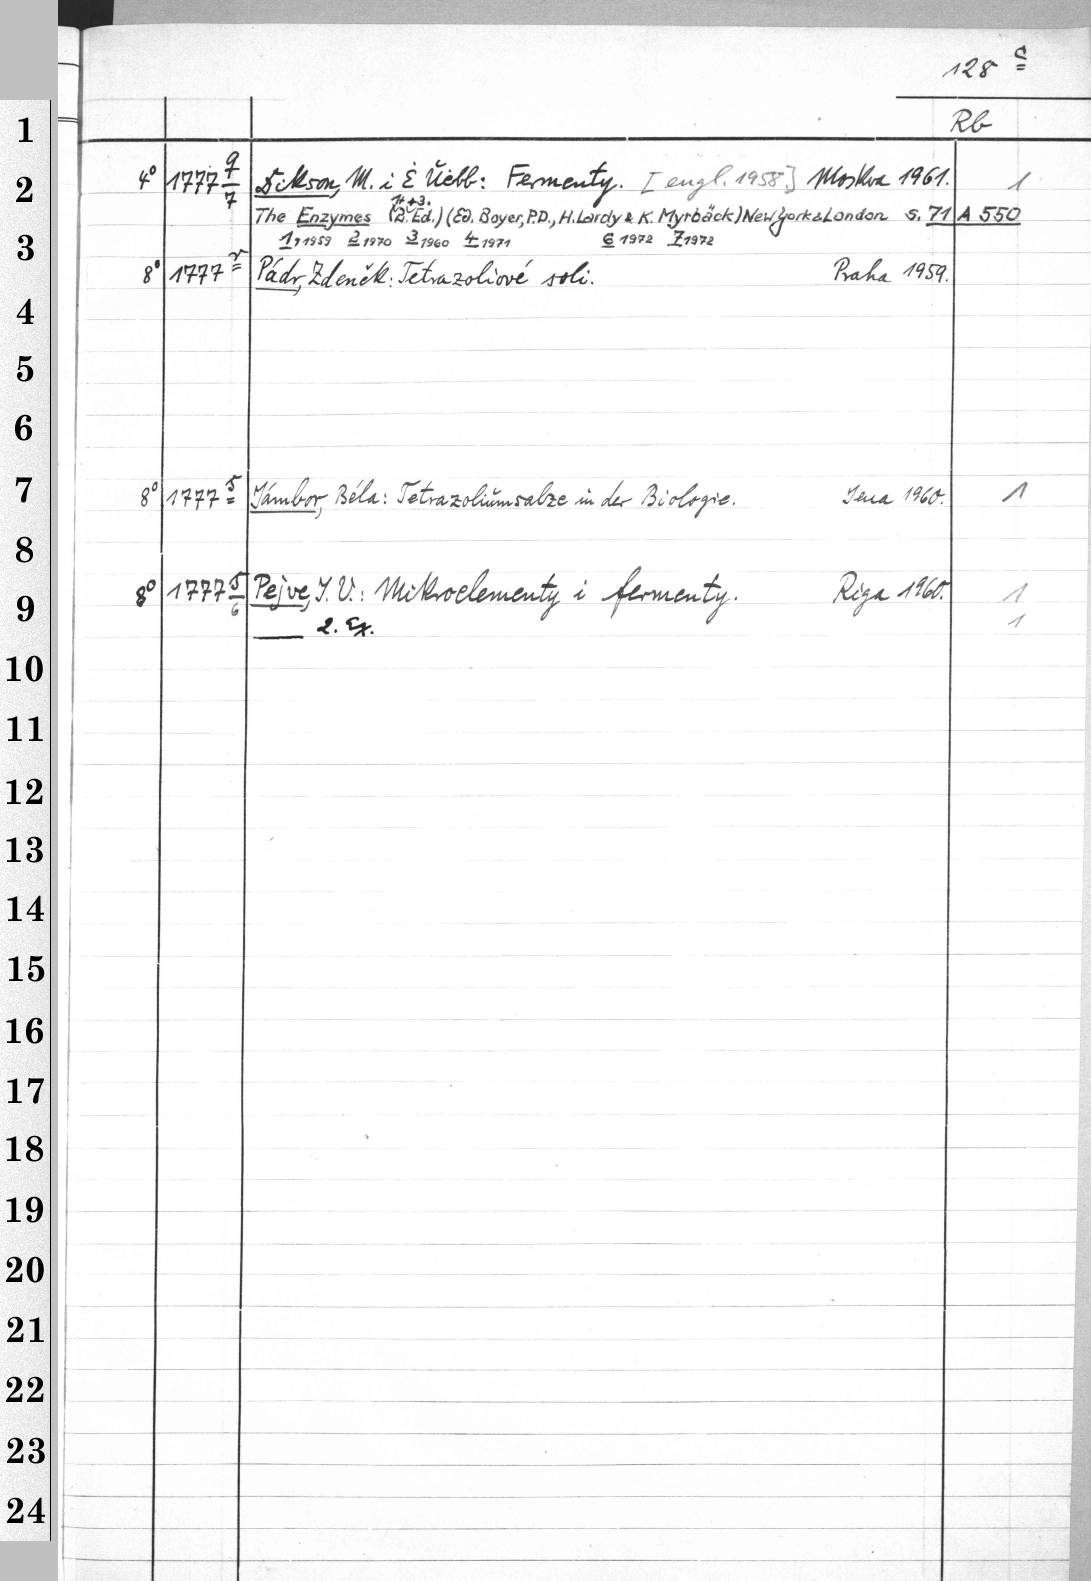 128 c
Rb
1
2
3
4
5
6
7
8
9
10
11
12
13
14
15
16
17
18
19
20
21
22
23
24
4° 1777 q/7 Dikson, M. i Ė Uėbb: Fermenty. [engl. 1958.] Moskva 1961. 1
The Enzymes (2. Ed.) (Ed. Boyer, P.D., H. Lardy & K. Myrbäck) New York & London s. 71 A 550
1. + 3.
1, 1959 2 1970 3 1960 4 1971 6 1972 7 1972
8° 1777 r Pádr, Zdeněk: Tetrazoliové soli. Praha 1959.
8° 1777 s Jámbor, Béla: Tetrazoliŭmsalze in der Biologie. Jena 1960. 1
8° 1777 s/6 Pejve, J. V.: Mikroelementy i fermenty. Riga 1960. 1
—— 2. Ex. 1